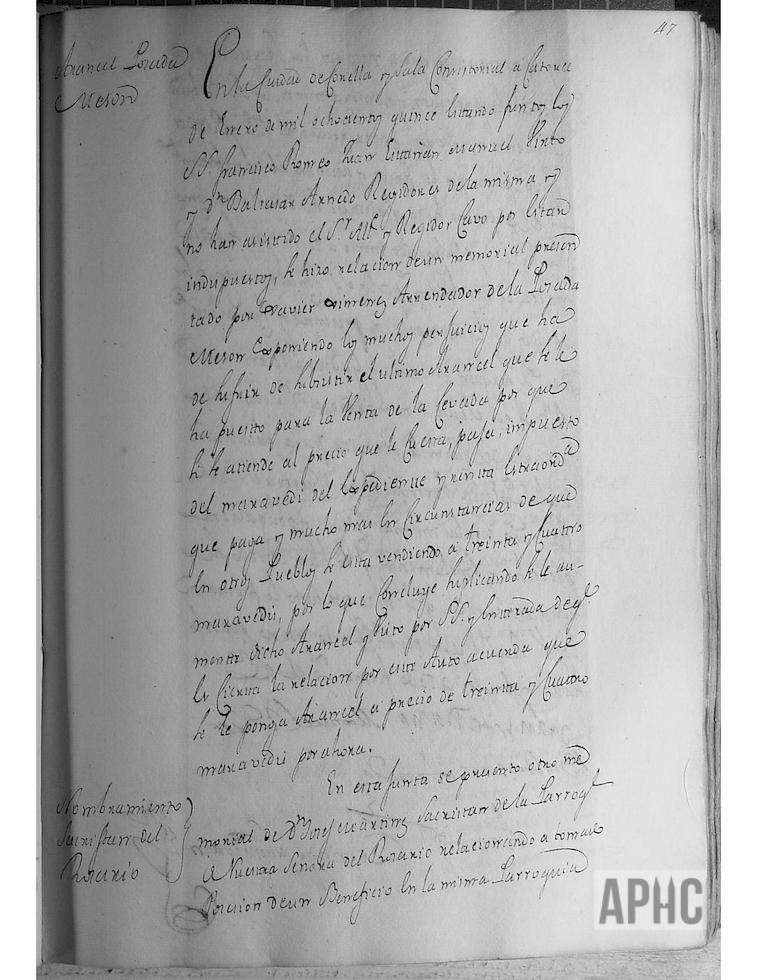 47
Arancel Posada
Meson
En la Ciudad de Corella y Sala Consistorial a Catorce
de Enero de mil ochocientos quince estando juntos los
SS. francisco Romeo Juan Manuel Pinto
y Dn Baltasar Arnedo Regidores de la misma y
no han asistido el Sr. Alce. y Regidor Cavo por estar
indispuestos, se hizo relacion de un memorial presen
tado por Xavier Ximenez Arrendador de la Posada
Meson Exponiendo los muchos perjuicios que ha
de sufrir de subsistir el ultimo Arancel que se le
ha puesto para la Venta de la Cevada por que
si se atiende al precio que le Cuesta, paja, impuesto
del maravedi del Expediente y renta Estraorda
que paga y mucho mas en Circunstancias de que
En otros Pueblos se esta vendiendo a treinta y Cuatro
maravedis, por lo que Concluye suplicando se le au-
mente dicho Arancel y Visto por SS. y Enterada de qe.
Es Cierta la relacion por este Auto acuerda que
se le ponga Arancel a precio de treinta y Cuatro
maravedis por ahora.
En esta junta se presento otro me
Nombramiento
Sacristan del
Rosario
morial de Dn Josef Martinez Sacristan de la Parroqa
a Nuestra Señora del Rosario relacionando a tomado
Posesion de un Beneficio En la misma Parroquia
APHC